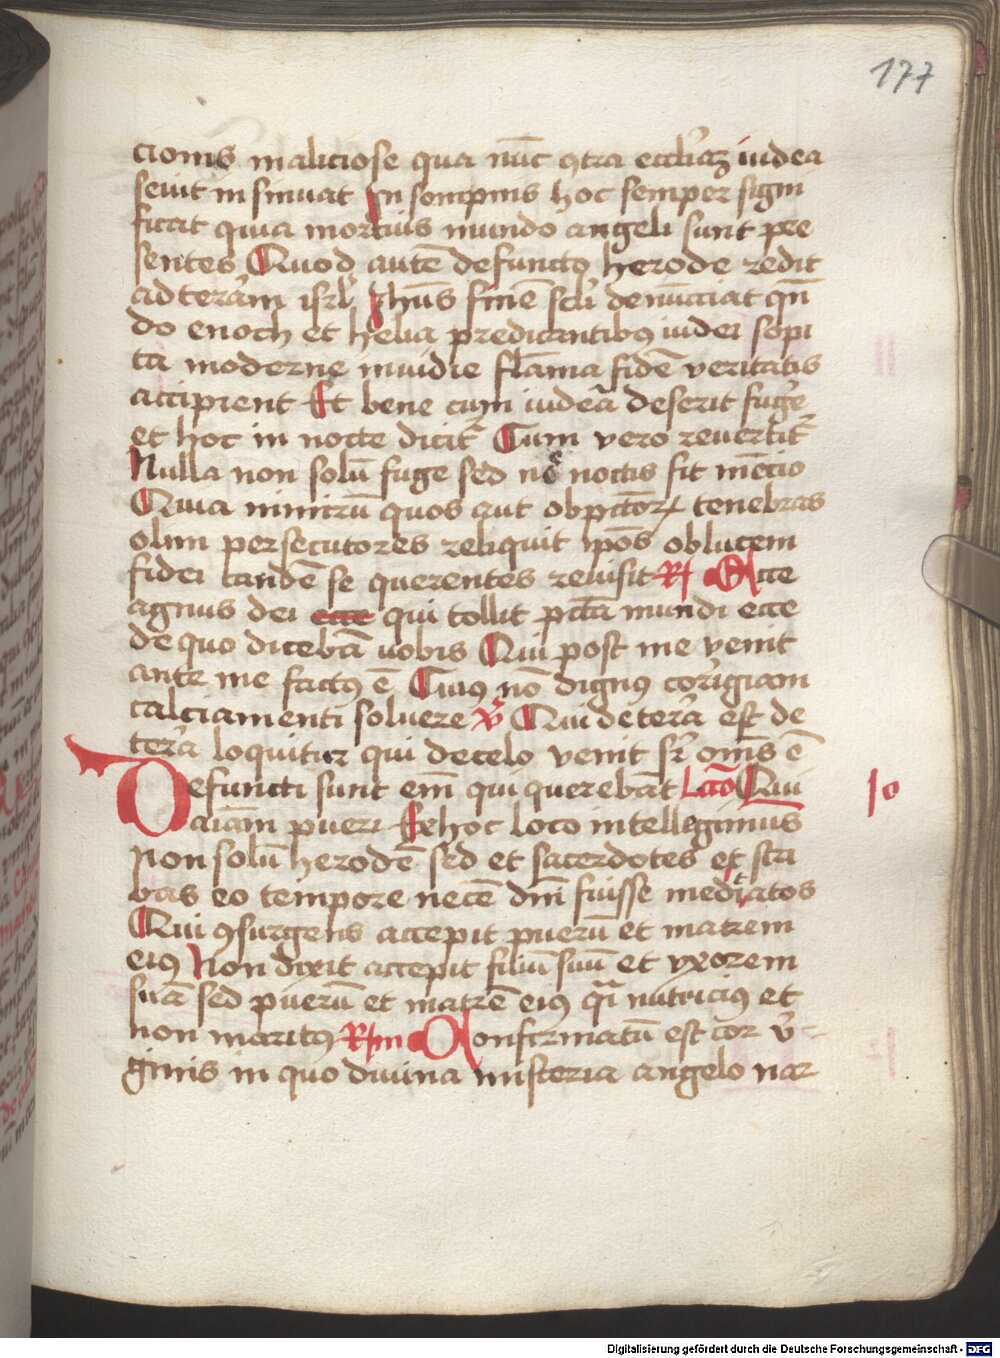 177
cionis maliciose qua nūc ɔtra eccl'iaꝫ iudea
seuit insinuat In sompnis hoc semper signi
ficat quia mortuis mundo angeli sunt pre
sentes Quod autē defuncto herode redit
ad terām isrl' Ihūs finē sc̄li denūcciat qn̄
do enoch et helia predicantibꝯ iudei sopi
ta moderne inuidie flāma fidē veritatis
accipient Et bene cum iudeā deserit fuge
et hoc in nocte dicit᷑ Cum vero reuertit᷑
Nulla non solū fuge sed nec noctis fit mētio
Quia nimirū quos aut ob pctōꝝ tenebras
olim persecutores reliquit ip̄os ob lucem
fidei tandē se querentes reuisit R̸ Ecce
agnus dei ecce qui tollit pctā mundi ecce
de quo dicebā uobis Qui post me venit
ante me factꝯ ē Cuiꝯ nō dignꝯ corrigiam
calciamenti soluere v̄ Qui de tera est de
tera loquitur qui de celo venit sr̄ om̄s ē
Defuncti sunt em̄ qui querebāt Lc̄io Qui
aīam pueri Ex hoc loco intelleḡimus
non solū herodē sed et sacerdotes et scri
bas eo tempore necē dn̄i fuisse meditatos
Qui ɔsurgens accepit puerū et matrem
eiꝯ Non dixit accepit filiū suū et vxorem
suā sed puerū et matrē eiꝯ qͣi nutriciꝯ et
non maritꝯ R̸m Confirmatū est cor v̄
ginis in quo diuina misteria angelo nar